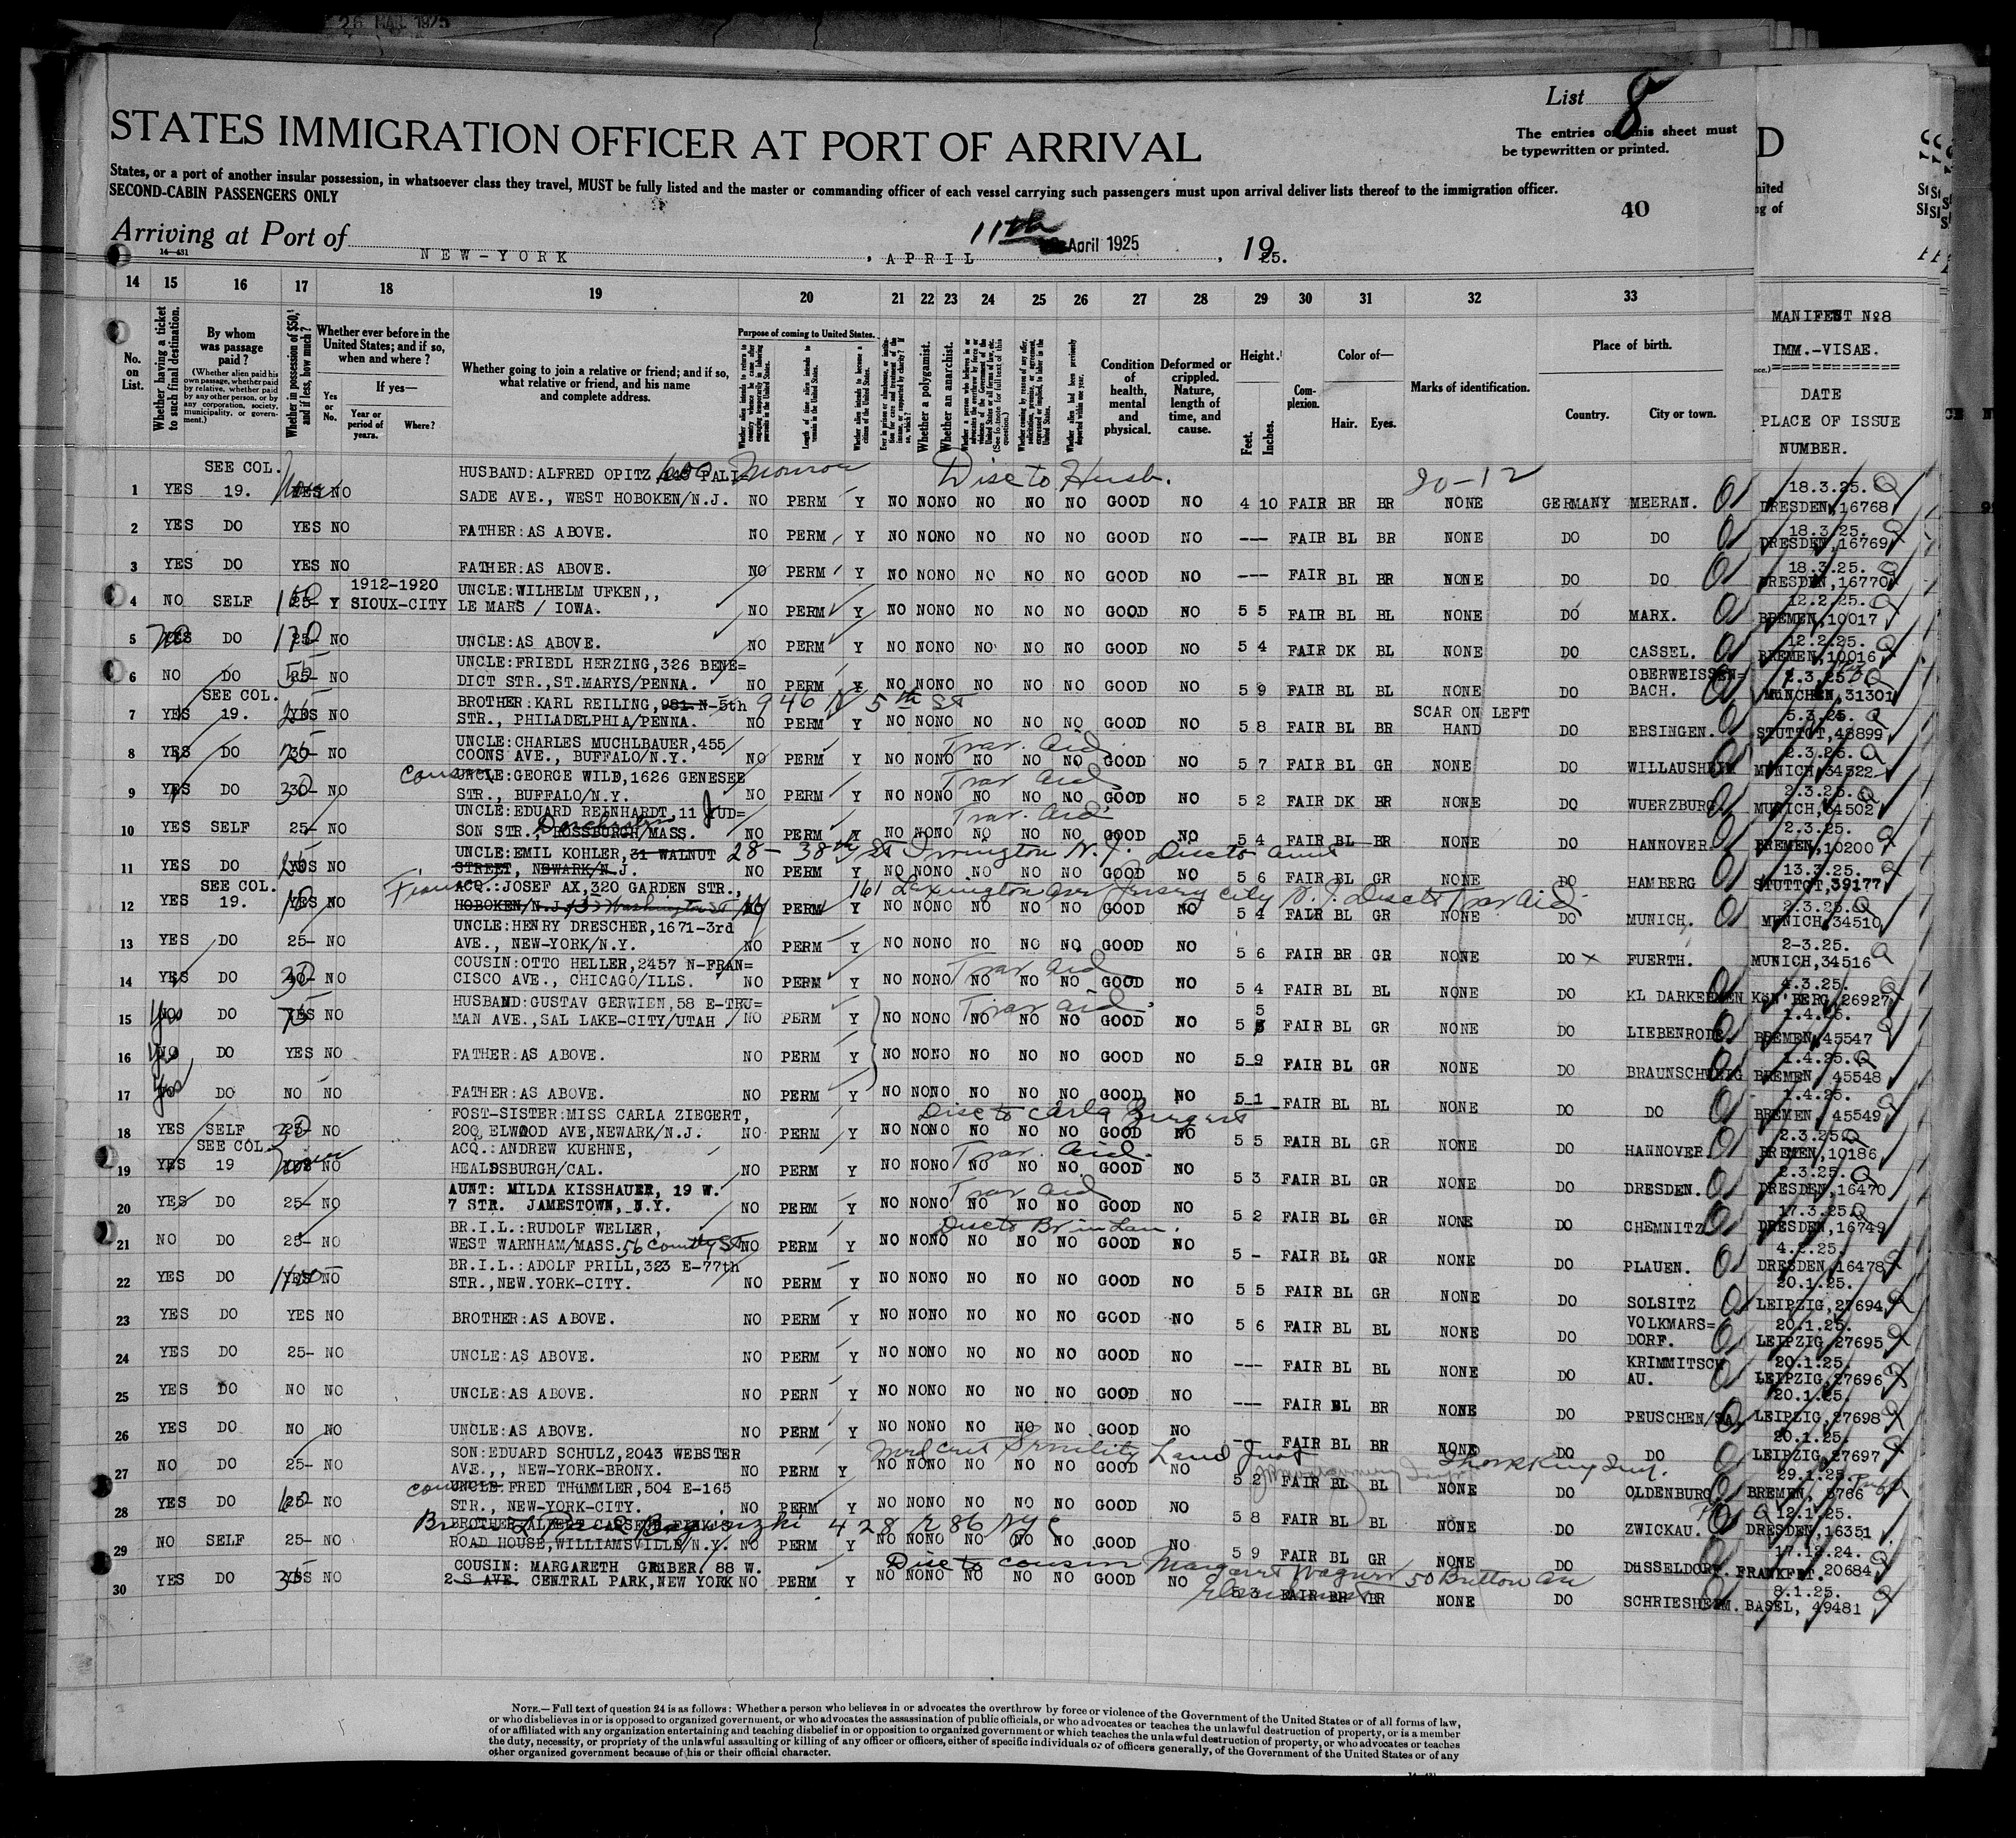 26 MAR 1925
List 8
STATES IMMIGRATION OFFICER AT PORT OF ARRIVAL
The entries on this sheet must
be typewritten or printed.
States, or a port of another insular possession, in whatsoever class they travel, MUST be fully listed and the master or commanding officer of each vessel carrying such passengers must upon arrival deliver lists thereof to the immigration officer.
SECOND-CABIN PASSENGERS ONLY
40
Arriving at Port of NEW-YORK , APRIL 11th April 1925 , 1925.
14-431
14 15 16 17 18 19 20 21 22 23 24 25 26 27 28 29 30 31 32 33
No. on List.
Whether having a ticket to such final destination.
By whom was passage paid?
(Whether alien paid his own passage, whether paid by relative, whether paid by any other person, or by any corporation, society, municipality, or government.)
Whether in possession of $50, and if less, how much?
Whether ever before in the United States; and if so, when and where?
If yes—
Yes or No.
Year or period of years.
Where?
Whether going to join a relative or friend; and if so, what relative or friend, and his name and complete address.
Purpose of coming to United States.
Length of time alien intends to remain in the United States.
Whether alien intends to become a citizen of the United States.
Whether a polygamist.
Whether an anarchist.
Condition of health, mental and physical.
Deformed or crippled. Nature, length of time, and cause.
Height.
Feet. Inches.
Complexion.
Color of—
Hair. Eyes.
Marks of identification.
Place of birth.
Country. City or town.
MANIFEST No8
IMM.-VISAE.
DATE
PLACE OF ISSUE
NUMBER.
SEE COL. HUSBAND:ALFRED OPITZ, 145 PALI= 600 Monroe Disc to Husb. 20-12 18.3.25.
1 YES 19. YES None NO SADE AVE., WEST HOBOKEN/N.J. NO PERM Y NO NONO NO NO NO GOOD NO 4 10 FAIR BR BR NONE GERMANY MEERAN. DRESDEN,16768
18.3.25.
2 YES DO YES NO FATHER:AS ABOVE. NO PERM Y NO NONO NO NO NO GOOD NO --- FAIR BL BR NONE DO DO DRESDEN,16769
18.3.25.
3 YES DO YES NO FATHER:AS ABOVE. NO PERM Y NO NONO NO NO NO GOOD NO --- FAIR BL BR NONE DO DO DRESDEN,16770
1912-1920 UNCLE:WILHELM UFKEN,, 12.2.25.
4 NO SELF 25- Y SIOUX-CITY LE MARS / IOWA. NO PERM Y NO NONO NO NO NO GOOD NO 5 5 FAIR BL BL NONE DO MARX. BREMEN,10017
12.2.25.
5 YES No DO 25- 170 NO UNCLE:AS ABOVE. NO PERM Y NO NONO NO NO NO GOOD NO 5 4 FAIR DK BL NONE DO CASSEL. BREMEN,10016
UNCLE:FRIEDL HERZING,326 BENE= OBERWEISSEN= 2.3.25.
6 NO DO 25- NO DICT STR.,ST.MARYS/PENNA. NO PERM Y NO NONO NO NO NO GOOD NO 5 9 FAIR BL BL NONE DO BACH. MüNCHEN,31301
SEE COL. BROTHER:KARL REILING,981.N-5th 946 N 5th St SCAR ON LEFT 5.3.25.
7 YES 19. YES NO STR., PHILADELPHIA/PENNA. NO PERM Y NO NONO NO NO NO GOOD NO 5 8 FAIR BL BR HAND DO ERSINGEN. STUTTGT,48899
UNCLE:CHARLES MUCHLBAUER,455 Trav. Aid. 2.3.25.
8 YES DO NO COONS AVE., BUFFALO/N.Y. NO PERM Y NO NONO NO NO NO GOOD NO 5 7 FAIR BL GR NONE DO WILLAUSHEIM MUNICH,34522
Cousin UNCLE:GEORGE WILD,1626 GENESEE Trav Aid 2.3.25.
9 YES DO 30- NO STR., BUFFALO/N.Y. NO PERM Y NO NONO NO NO NO GOOD NO 5 2 FAIR DK BR NONE DO WUERZBURG MUNICH,34502
UNCLE:EDUARD REINHARDT,11 JUD= Trav. Aid 2.3.25.
10 YES SELF 25- NO SON STR., ROSSBURGH/MASS. Dorchester NO PERM Y NO NONO NO NO NO GOOD NO 5 4 FAIR BL BR NONE DO HANNOVER BREMEN,10200
UNCLE:EMIL KOHLER,31 WALNUT 28 - 38th St Irvington N.J. Disc to Aunt 13.3.25.
11 YES DO YES NO STREET, NEWARK/N.J. NO PERM Y NO NONO NO NO NO GOOD NO 5 6 FAIR BL GR NONE DO HAMBERG STUTTGT,39177
SEE COL. ACQ.:JOSEF AX,320 GARDEN STR., 161 Lexington Ave Jersey City N.J. Disc to Trav Aid 2.3.25.
12 YES 19. YES NO HOBOKEN/N.J. Washington St NO PERM Y NO NONO NO NO NO GOOD NO 5 4 FAIR BL GR NONE DO MUNICH. MUNICH,34510
UNCLE:HENRY DRESCHER,1671-3rd 2-3.25.
13 YES DO 25- NO AVE., NEW-YORK/N.Y. NO PERM Y NO NONO NO NO NO GOOD NO 5 6 FAIR BR GR NONE DO X FUERTH. MUNICH,34516
COUSIN:OTTO HELLER,2457 N-FRAN= Trav Aid 4.3.25.
14 YES DO 30 NO CISCO AVE., CHICAGO/ILLS. NO PERM Y NO NONO NO NO NO GOOD NO 5 4 FAIR BL BL NONE DO KL DARKEHMEN KÖN'BERG,26927
HUSBAND:GUSTAV GERWIEN,58 E-TRU= Trav Aid 1.4.25.
15 NO Yes DO YES NO MAN AVE.,SAL LAKE-CITY/UTAH NO PERM Y NO NONO NO NO NO GOOD NO 5 5 FAIR BL GR NONE DO LIEBENRODE BREMEN,45547
1.4.25.
16 NO Yes DO YES NO FATHER:AS ABOVE. NO PERM Y NO NONO NO NO NO GOOD NO 5 9 FAIR BL GR NONE DO BRAUNSCHWEIG BREMEN, 45548
1.4.25.
17 NO Yes DO NO NO FATHER:AS ABOVE. NO PERM Y NO NONO NO NO NO GOOD NO 5 1 FAIR BL BL NONE DO DO BREMEN, 45549
FOST-SISTER:MISS CARLA ZIEGERT, Disc to Carla Ziegert 2.3.25.
18 YES SELF 25- NO 200 ELWOOD AVE,NEWARK/N.J. NO PERM Y NO NONO NO NO NO GOOD NO 5 5 FAIR BL GR NONE DO HANNOVER. BREMEN,10186
SEE COL. ACQ.:ANDREW KUEHNE, Trav. Aid. 2.3.25.
19 YES 19 YES NO HEALDSBURGH/CAL. NO PERM Y NO NONO NO NO NO GOOD NO 5 3 FAIR BL GR NONE DO DRESDEN. DRESDEN,16470
AUNT: MILDA KISSHAUER, 19 W. Trav Aid 17.3.25.
20 YES DO 25- NO 7 STR. JAMESTOWN, N.Y. NO PERM Y NO NONO NO NO NO GOOD NO 5 2 FAIR BL GR NONE DO CHEMNITZ DRESDEN,16749
BR.I.L.:RUDOLF WELLER, Disc to Br in Law. 4.2.25.
21 NO DO 25- NO WEST WARNHAM/MASS. 56 County St NO PERM Y NO NONO NO NO NO GOOD NO 5 - FAIR BL GR NONE DO PLAUEN. DRESDEN,16478
BR.I.L.:ADOLF PRILL,323 E-77th 20.1.25.
22 YES DO YES NO STR.,NEW.YORK-CITY. NO PERM Y NO NONO NO NO NO GOOD NO 5 5 FAIR BL GR NONE DO SOLSITZ LEIPZIG,27694
VOLKMARS= 20.1.25.
23 YES DO YES NO BROTHER:AS ABOVE. NO PERM Y NO NONO NO NO NO GOOD NO 5 6 FAIR BL BL NONE DO DORF. LEIPZIG,27695
KRIMMITSCH 20.1.25.
24 YES DO 25- NO UNCLE:AS ABOVE. NO PERM Y NO NONO NO NO NO GOOD NO --- FAIR BL BL NONE DO AU. LEIPZIG,27696
20.1.25.
25 YES DO NO NO UNCLE:AS ABOVE. NO PERN Y NO NONO NO NO NO GOOD NO --- FAIR BL BR NONE DO PEUSCHEN/SA. LEIPZIG,27698
20.1.25.
26 YES DO NO NO UNCLE:AS ABOVE. NO PERM Y NO NONO NO NO NO GOOD NO -- FAIR BL BR NONE DO DO LEIPZIG,27697
SON:EDUARD SCHULZ,2043 WEBSTER Med Cert Senility 29.1.25.
27 NO DO 25- NO AVE.,, NEW-YORK-BRONX. NO PERM Y NO NONO NO NO NO GOOD NO 5 2 FAIR BL BL NONE DO OLDENBURG BREMEN, 5766
cousin UNCLE:FRED THüMMLER,504 E-165 12.1.25.
28 YES DO 25- NO STR., NEW-YORK-CITY. NO PERM Y NO NONO NO NO NO GOOD NO 5 8 FAIR BL BL NONE DO ZWICKAU. DRESDEN,16351
428 E 86 NYC 17.12.24.
29 NO SELF 25- NO ROAD HOUSE,WILLIAMSVILLE/N.Y. NO PERM Y NO NONO NO NO NO GOOD NO 5 9 FAIR BL GR NONE DO DüSSELDORF. FRANKFRT. 20684
COUSIN: MARGARETH GRUBER. 88 W. Disc to cousin Margaret Wagner 50 Britton Ave 8.1.25.
30 YES DO YES NO 2 S AVE. CENTRAL PARK,NEW YORK NO PERM Y NO NONO NO NO NO GOOD NO 5 3 FAIR BR BR NONE DO SCHRIESHEIM. BASEL, 49481
NOTE.—Full text of question 24 is as follows: Whether a person who believes in or advocates the overthrow by force or violence of the Government of the United States or of all forms of law,
or who disbelieves in or is opposed to organized government, or who advocates the assassination of public officials, or who advocates or teaches the unlawful destruction of property, or is a member
of or affiliated with any organization entertaining and teaching disbelief in or opposition to organized government or which teaches the unlawful destruction of property, or who advocates or teaches
the duty, necessity, or propriety of the unlawful assaulting or killing of any officer or officers, either of specific individuals or of officers generally, of the Government of the United States or of any
other organized government because of his or their official character.